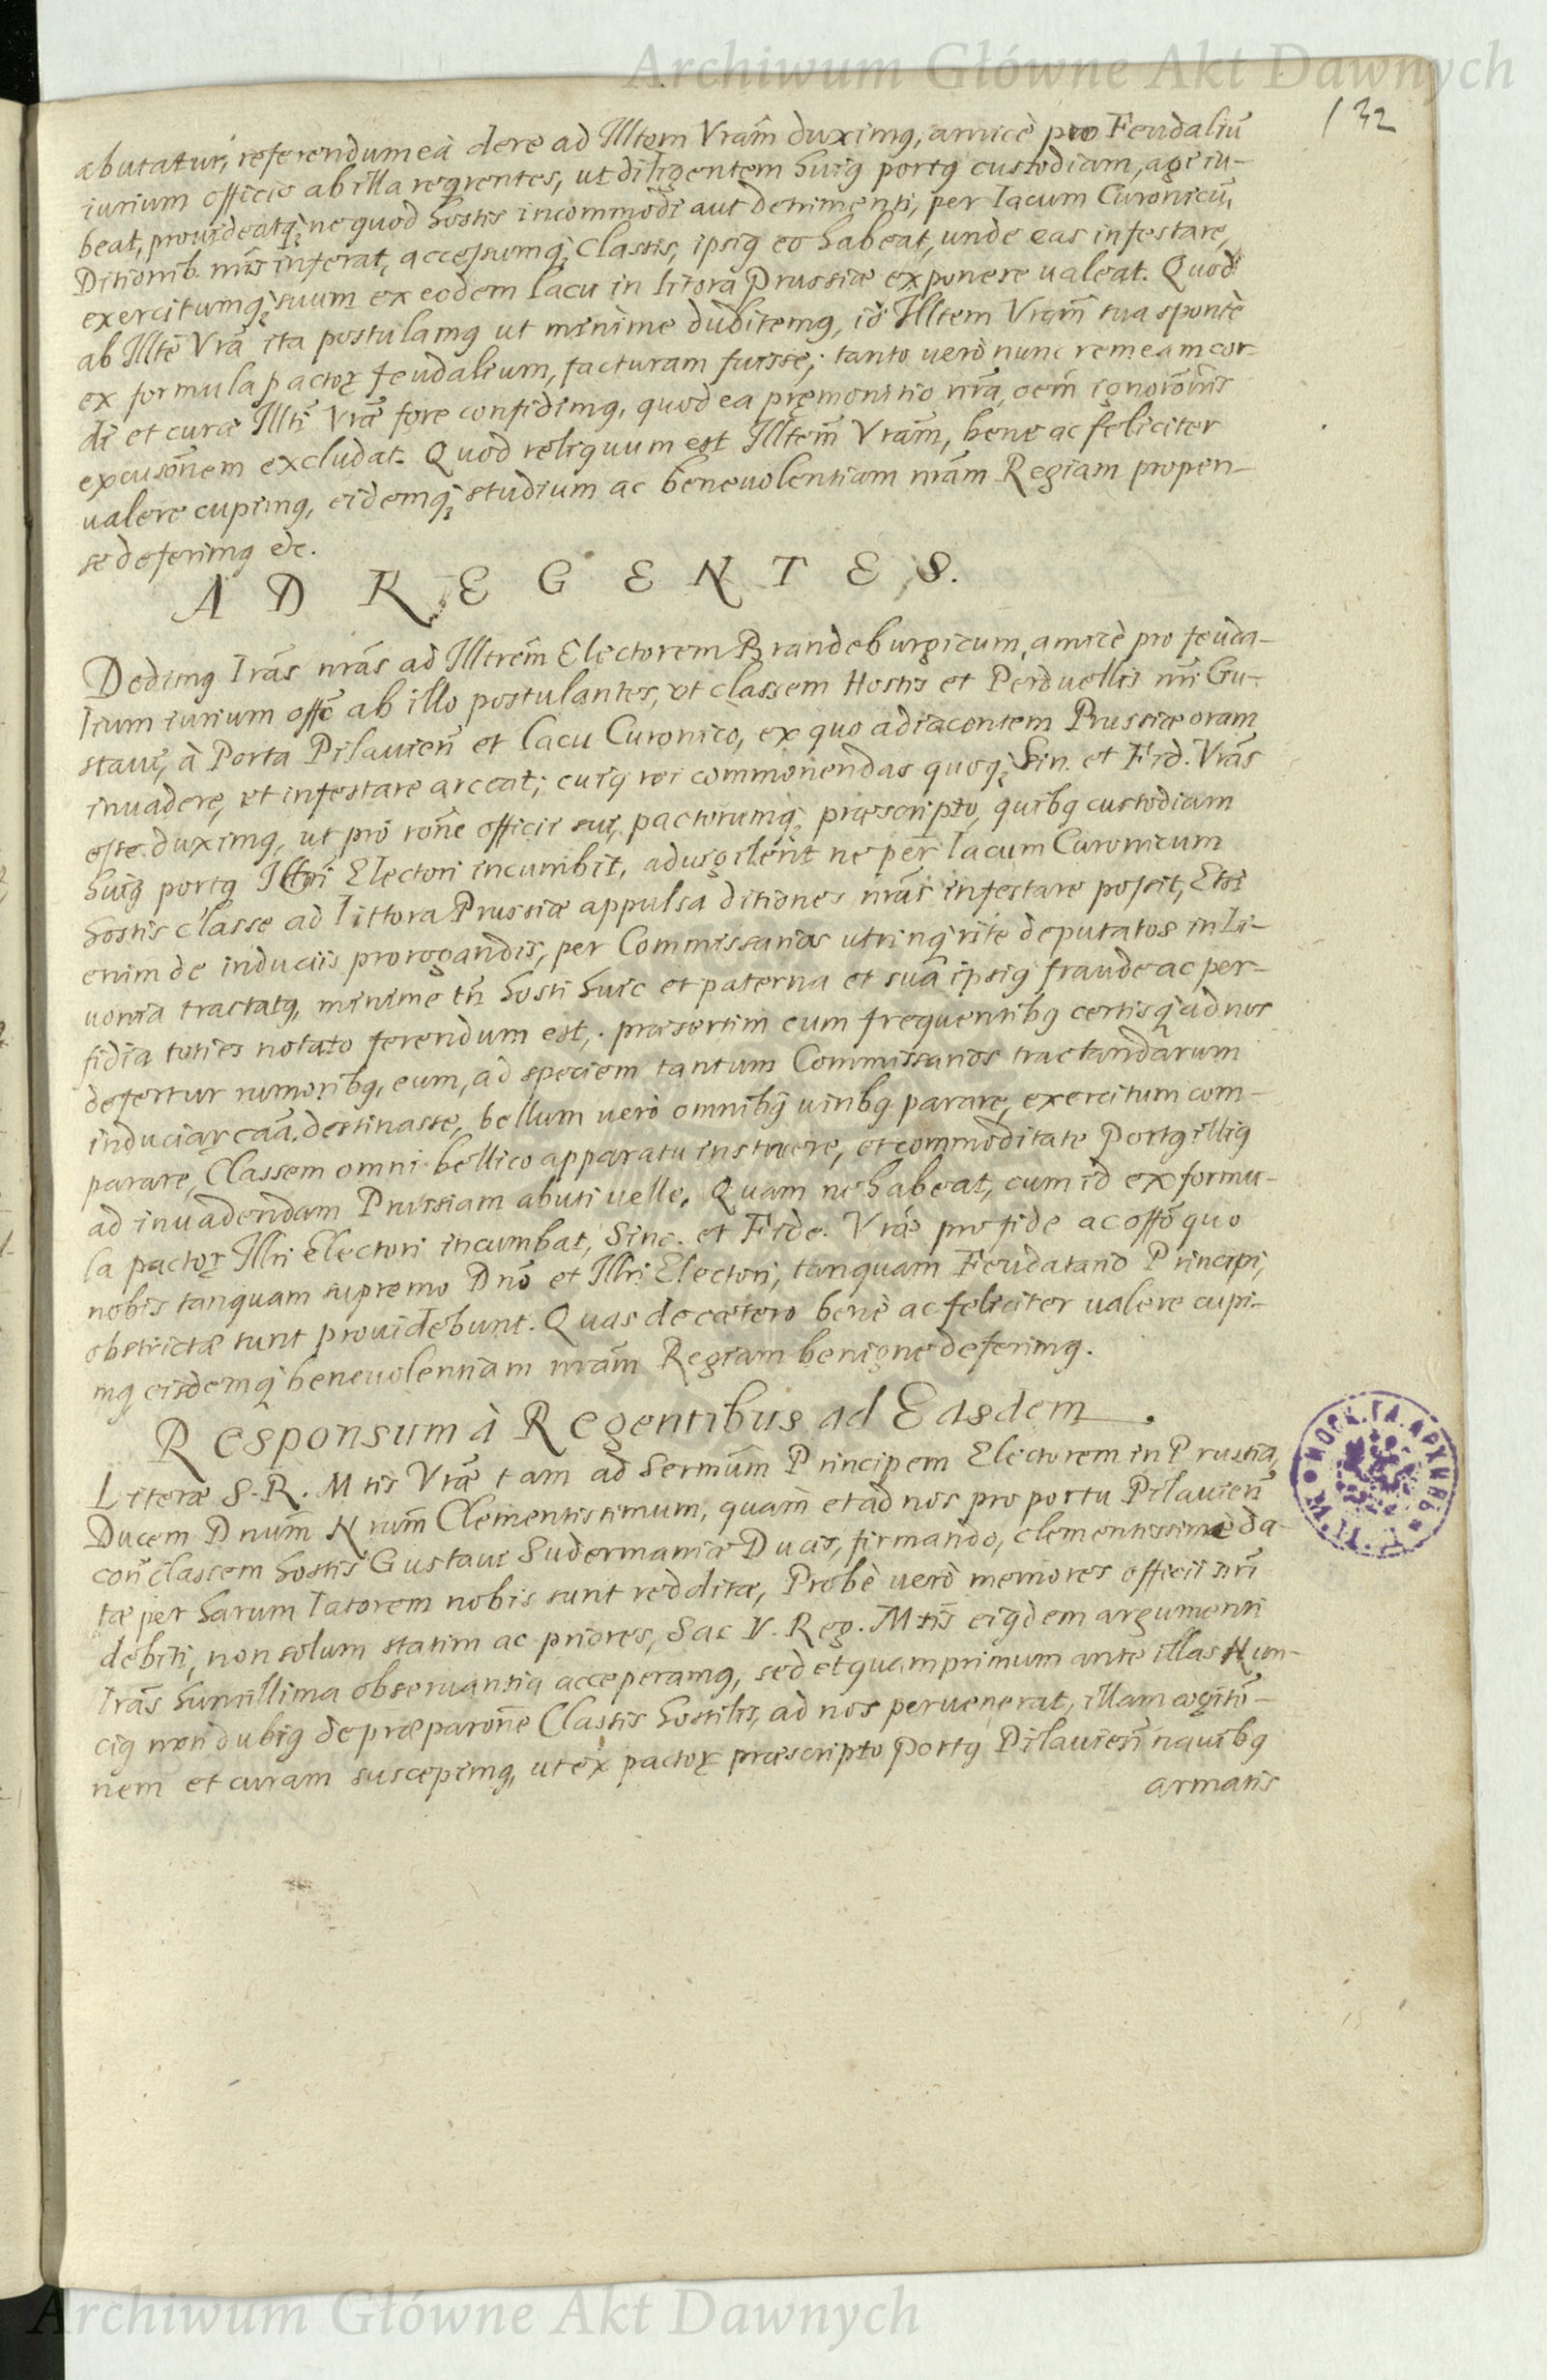 Archiwum Główne Akt Dawnych
132
abutatur, referendum eâ dere ad Illtem Vram̃ duximꝰ, amicè pro Feudaliũ
iurium officio ab illa reqrentes, ut diligentem huiꝰ portꝰ custodiam, agi iu-
beat, prouideatq; ne quod hostis incommodi aut detrimenti, per Lacum Curonicũ,
Ditionib. nr̃is inferat, accessumq; Classis, ipsiꝰ eo habeat, unde eas infestare,
exercitumq; suum ex eodem lacu in litora Prussiæ exponere ualeat. Quod
ab Illtẽ Vrã ita postulamꝰ ut minime dubitemꝰ, id Illtem Vram̃ sua sponte
ex formula pactoꝝ feudalium, facturam fuisse; tanto uerò nunc rem eam cor-
di et curæ Illti Vræ̃ fore confidimꝰ, quod ea pręmonitio nrã, oem̃ ignorõnis
excusõnem excludat. Quod reliquum est Illtem̃ Vram̃, bene ac feliciter
valere cupimꝰ, eidemq; studium ac beneuolentiam nrãm Regiam propen-
se deferimꝰ etc.
AD REGENTES.
Dedimꝰ Lrãs nrãs ad Illtrem̃ Electorem Brandeburgicum, amicè pro feuda-
lium iurium offõ ab illo postulantes, ut classem Hostis et Perduellis nr̃i Gu-
staui, à Porta Pilauien̄ et Lacu Curonico, ex quo adiacentem Prussiæ oram
inuadere, et infestare arceat; cuiꝰ rei commonendas quoq; Sin. et Fid. Vrãs
esse duximꝰ, ut pro rõne officii sui, pactorumq; præscripto, quibꝰ custodiam
huiꝰ portꝰ Illri Electori incumbit, aduigilent ne per Lacum Curonicum
hostis classe ad littora Prussiæ appulsa ditiones nrãs infestare possit, Etsi
enim de induciis prorogandis, per Commissarios utrinq; rite deputatos in Li-
uonia tractatꝰ, minime tñ hosti huic et paterna et suã ipsiꝰ fraude ac per-
fidia toties notato ferendum est, præsertim cum frequentibꝰ certisq; ad nos
defertur rumoribꝰ, eum, ad speciem tantum Commissarios tractandarum
induciaꝝ caã, destinasse, bellum uerò omnibꝰ uiribꝰ parare, exercitum com-
parare, Classem omni bellico apparatu instruere, et commoditate Portꝰ illiꝰ
ad inuadendam Prussiam abuti uelle. Quam ne habeat, cum id ex formu-
la pactoꝝ Illri Electori incumbat, Sinc. et Fide. Vræ̃ pro fide ac offõ quo
nobis tanquam supremo Dnõ et Illri Electori, tanquam Feudatario Principi,
obstrictæ sunt prouidebunt. Quas de cætero bene ac feliciter ualere cupi-
mꝰ eisdemq; beneuolentiam nrãm Regiam benigne deferimꝰ.
Responsum à Regentibus ad Easdem.
Literæ S. R. Mtis Vræ̃ tam ad Sermum̃ Principem Electorem in Prussia,
Ducem Dnum̃ Nrum̃ Clementissimum, quam et ad nos pro portu Pilauien̄
con̄ classem hostis Gustaui Sudermaniæ Ducis, firmando, clementissimè da-
tæ per harum latorem nobis sunt redditæ, Probè uerò memores officii nr̃i
debiti, non solum statim ac priores, Sac V. Reg. Mtis eiꝰdem argumenti
Lrãs humillima obseruantia acceperamꝰ, sed et quamprimum ante illas Nun-
ciꝰ non dubiꝰ de præparõne Classis hostilis, ad nos peruenerat, illam cogitõ-
nem et curam suscepimꝰ, ut ex pactoꝝ præscripto Portꝰ Pilauien̄ nauibꝰ
armatis
Archiwum Główne Akt Dawnych